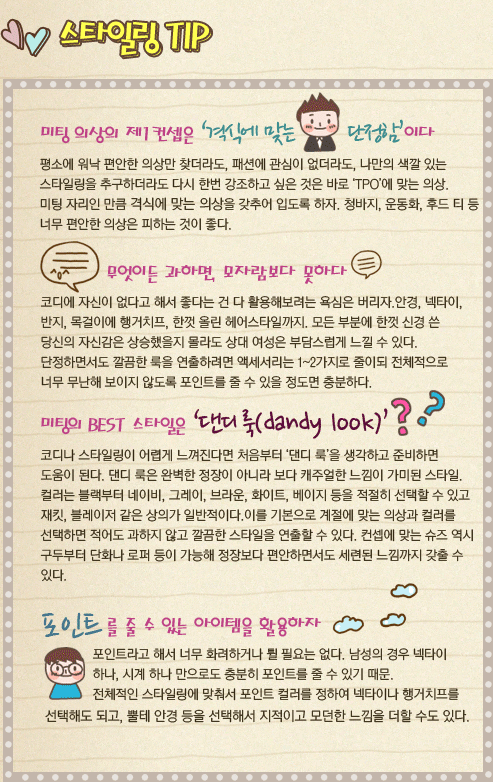 스타일링 TIP
미팅 의상의 제1 컨셉은 '격식에 맞는 단정함'이다
평소에 워낙 편안한 의상만 찾더라도, 패션에 관심이 없더라도, 나만의 색깔 있는
스타일링을 추구하더라도 다시 한번 강조하고 싶은 것은 바로 'TPO'에 맞는 의상.
미팅 자리인 만큼 격식에 맞는 의상을 갖추어 입도록 하자. 청바지, 운동화, 후드 티 등
너무 편안한 의상은 피하는 것이 좋다.
무엇이든 과하면, 모자람보다 못하다
코디에 자신이 없다고 해서 좋다는 건 다 활용해보려는 욕심은 버리자.안경, 넥타이,
반지, 목걸이에 행거치프, 한껏 올린 헤어스타일까지. 모든 부분에 한껏 신경 쓴
당신의 자신감은 상승했을지 몰라도 상대 여성은 부담스럽게 느낄 수 있다.
단정하면서도 깔끔한 룩을 연출하려면 액세서리는 1~2가지로 줄이되 전체적으로
너무 무난해 보이지 않도록 포인트를 줄 수 있을 정도면 충분하다.
미팅의 BEST 스타일은 '댄디 룩(dandy look)'??
코디나 스타일링이 어렵게 느껴진다면 처음부터 '댄디 룩'을 생각하고 준비하면
도움이 된다. 댄디 룩은 완벽한 정장이 아니라 보다 캐주얼한 느낌이 가미된 스타일.
컬러는 블랙부터 네이비, 그레이, 브라운, 화이트, 베이지 등을 적절히 선택할 수 있고
재킷, 블레이저 같은 상의가 일반적이다.이를 기본으로 계절에 맞는 의상과 컬러를
선택하면 적어도 과하지 않고 깔끔한 스타일을 연출할 수 있다. 컨셉에 맞는 슈즈 역시
구두부터 단화나 로퍼 등이 가능해 정장보다 편안하면서도 세련된 느낌까지 갖출 수
있다.
포인트를 줄 수 있는 아이템을 활용하자
포인트라고 해서 너무 화려하거나 튈 필요는 없다. 남성의 경우 넥타이
하나, 시계 하나 만으로도 충분히 포인트를 줄 수 있기 때문.
전체적인 스타일링에 맞춰서 포인트 컬러를 정하여 넥타이나 행거치프를
선택해도 되고, 뿔테 안경 등을 선택해서 지적이고 모던한 느낌을 더할 수도 있다.